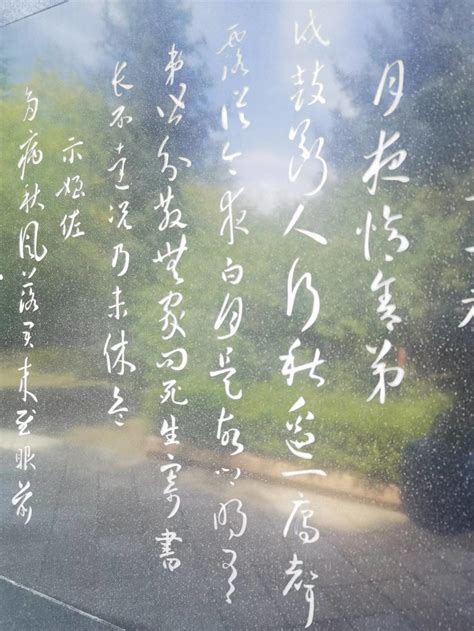 月夜憶舍弟
戍鼓斷人行秋邊一雁聲
露從今夜白月是故鄉明有
弟皆分散無家問死生寄書
长不達況乃未休兵
示姪佐
多病秋風落君來慰眼前